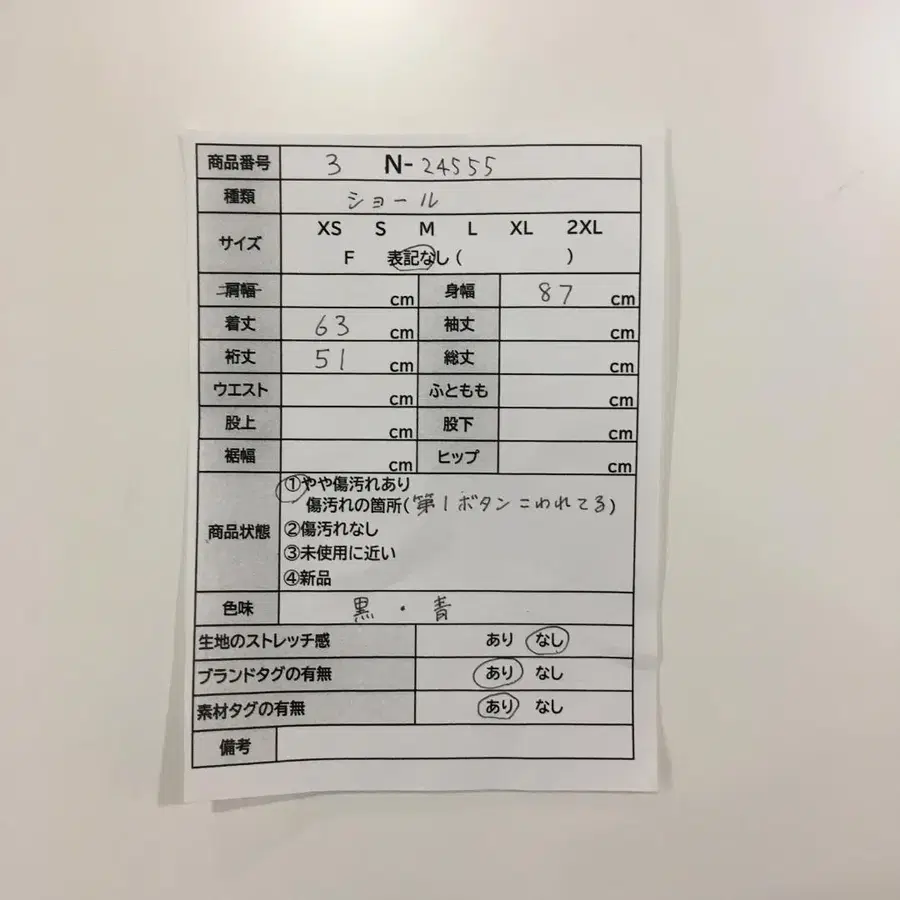 商品番号 3 N-24555
種類 ショール
サイズ XS S M L XL 2XL
F 表記なし ( )
肩幅 cm 身幅 87 cm
着丈 63 cm 袖丈 cm
裄丈 51 cm 総丈 cm
ウエスト cm ふともも cm
股上 cm 股下 cm
裾幅 cm ヒップ cm
商品状態 ①やや傷汚れあり
傷汚れの箇所(第1ボタンこわれてる)
②傷汚れなし
③未使用に近い
④新品
色味 黒・青
生地のストレッチ感 あり なし
ブランドタグの有無 あり なし
素材タグの有無 あり なし
備考